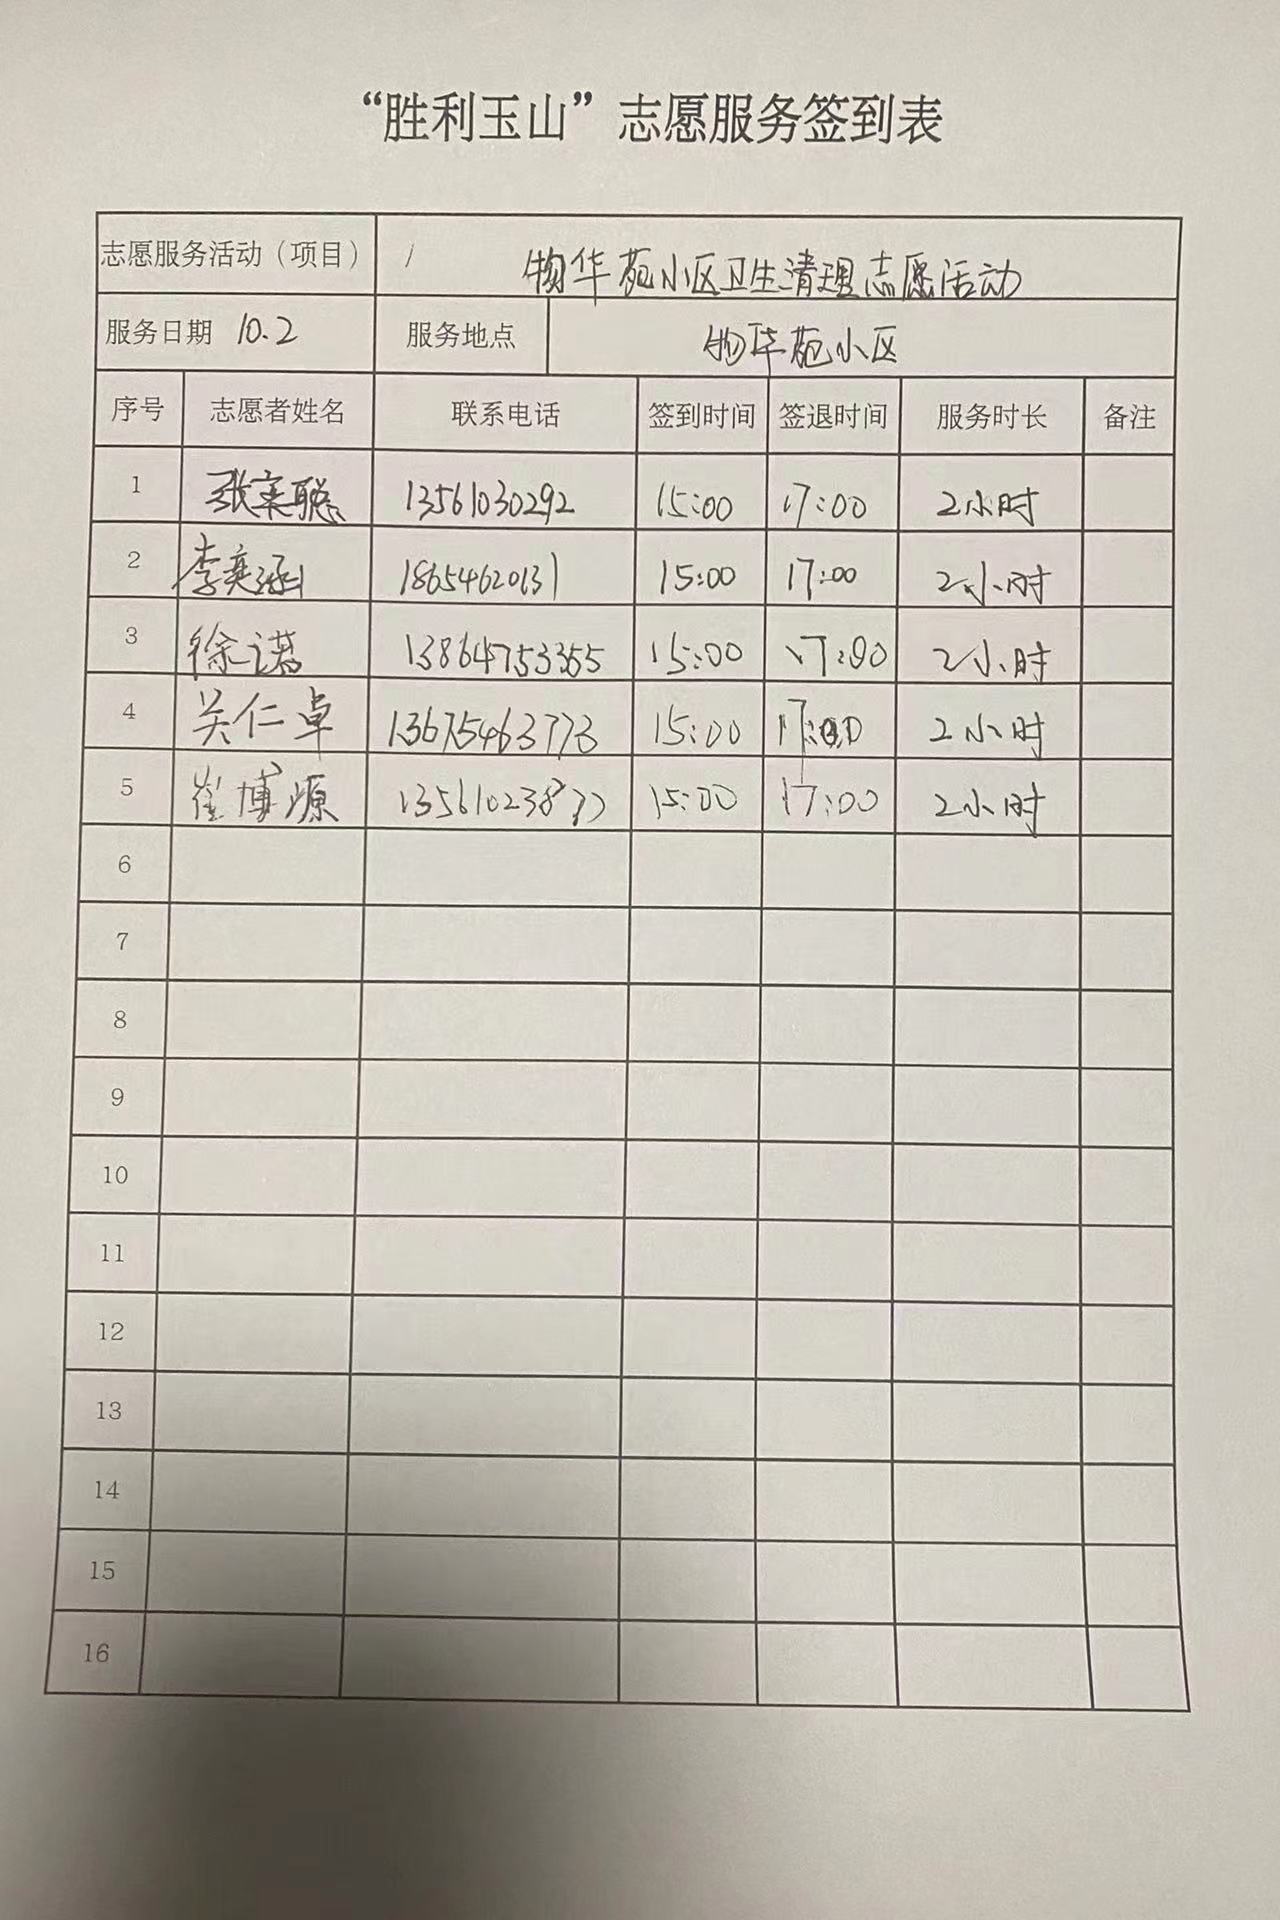 “胜利玉山”志愿服务签到表
志愿服务活动（项目） 物华苑小区卫生清理志愿活动
服务日期 10.2 服务地点 物华苑小区
序号 志愿者姓名 联系电话 签到时间 签退时间 服务时长 备注
1 张 聪 13561030292 15:00 17:00 2小时
2 李奕涵 18654620131 15:00 17:00 2小时
3 徐诺 13864753355 15:00 17:00 2小时
4 吴仁卓 13675463773 15:00 17:00 2小时
5 崔博源 15:00 17:00 2小时
6
7
8
9
10
11
12
13
14
15
16